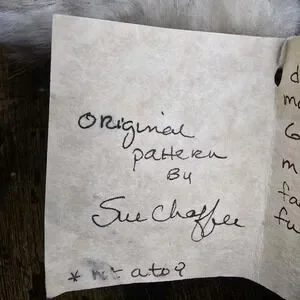 Original
pattern
By
Sue Chaffee
* 
d
m
6
m
fa
fu